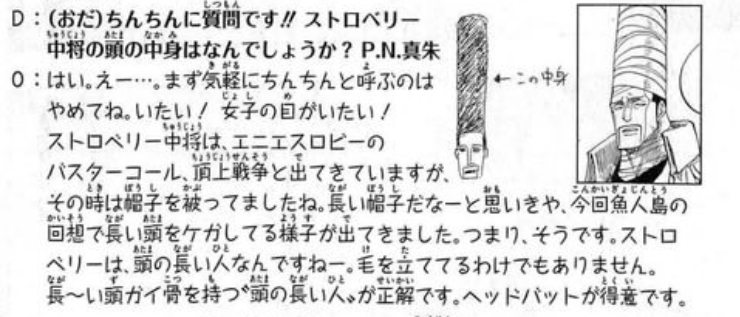 D：(おだ)ちんちんに質問です!! ストロベリー
中将の頭の中身はなんでしょうか? P.N.真朱
O：はい。えー…。まず気軽にちんちんと呼ぶのは
やめてね。いたい! 女子の目がいたい!
ストロベリー中将は、エニエスロビーの
バスターコール、頂上戦争と出てきていますが、
その時は帽子を被ってましたね。長い帽子だなーと思いきや、今回魚人島の
回想で長い頭をケガしてる様子が出てきました。つまり、そうです。ストロ
ベリーは、頭の長い人なんですねー。毛を立ててるわけでもありません。
長〜い頭ガイ骨を持つ〝頭の長い人〟が正解です。ヘッドバットが得意です。
←この中身